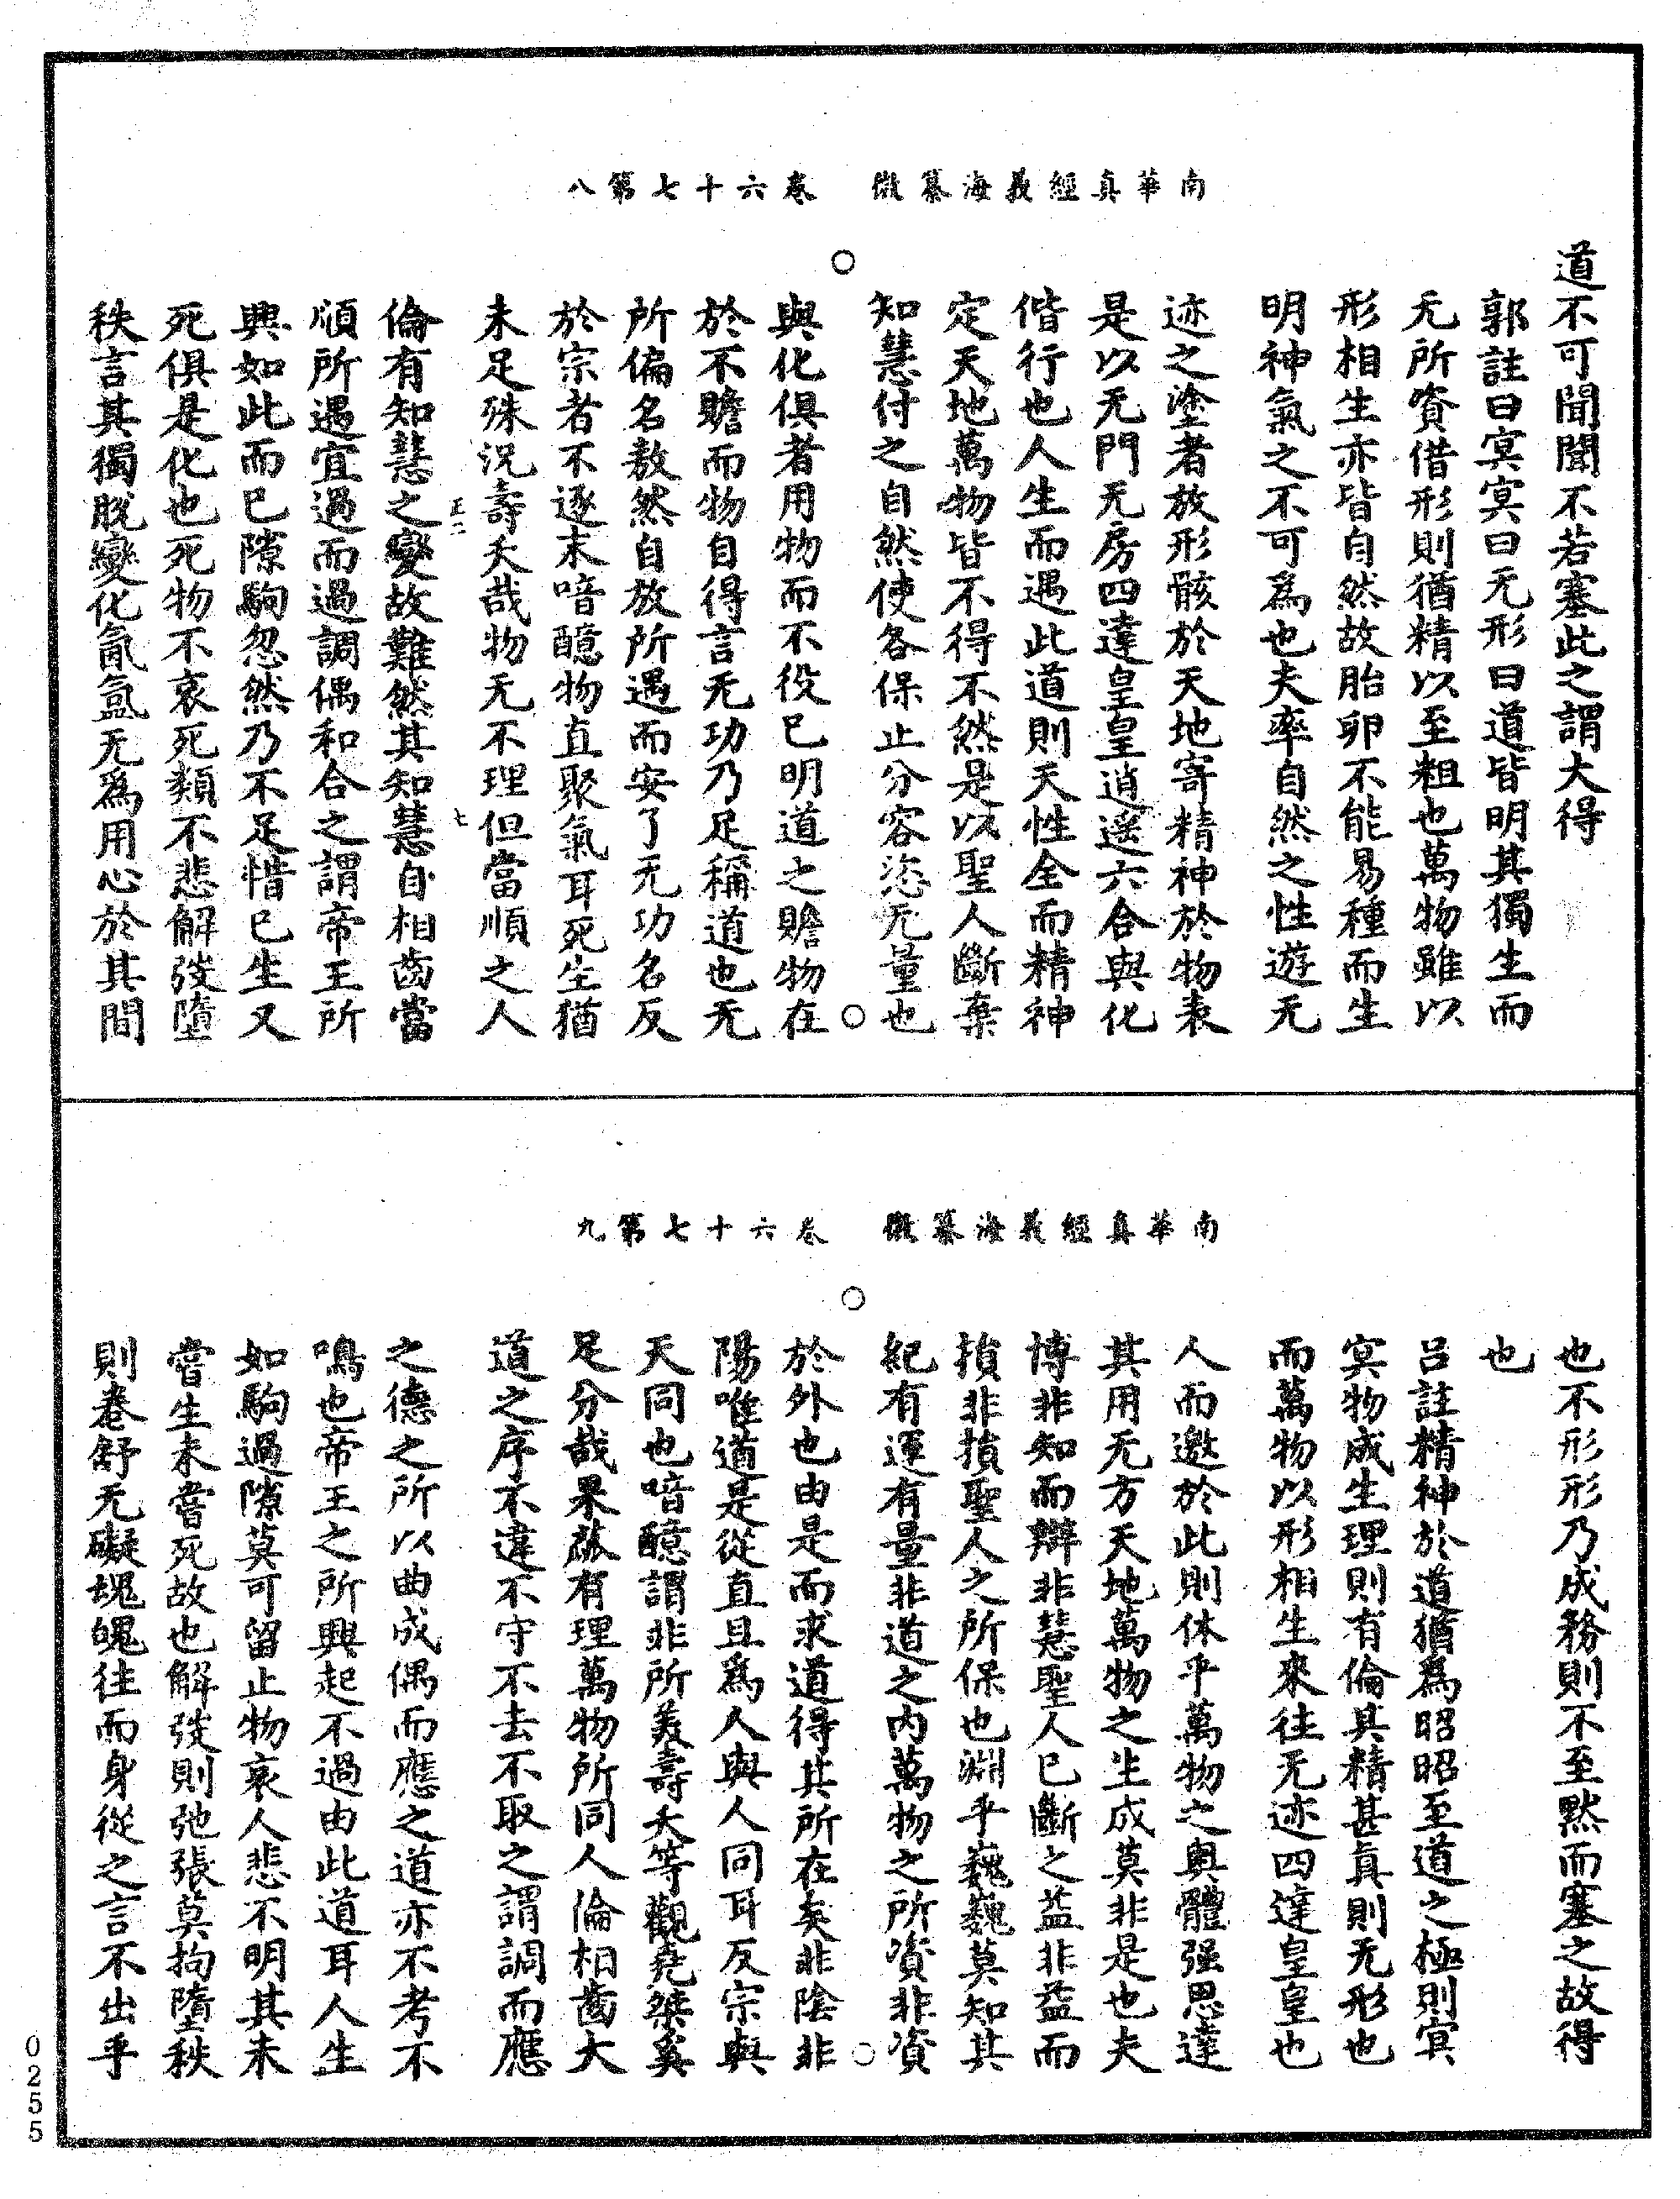 南華真經義海纂微　卷六十七第八
道不可聞聞不若塞此之謂大得
郭註曰冥冥曰无形曰道皆明其獨生而
无所資借形則猶精以至粗也萬物雖以
形相生亦皆自然故胎卵不能易種而生
明神氣之不可爲也夫率自然之性遊无
迹之塗者放形骸於天地寄精神於物表
是以无門无房四達皇皇逍遥六合與化
偕行也人生而遇此道則天性全而精神
定天地萬物皆不得不然是以聖人斷棄
知慧付之自然使各保止分容恣无量也
與化俱者用物而不役已明道之贍物在
於不贍而物自得言无功乃足稱道也无
所偏名敖然自放所遇而安了无功名反
於宗者不逐末喑醷物直聚氣耳死生猶
未足殊況壽夭哉物无不理但當順之人
正二
七
倫有知慧之變故難然其知慧自相齒當
順所遇宜過而過調偶和合之謂帝王所
興如此而已隙駒忽然乃不足惜已生又
死俱是化也死物不哀死類不悲解弢墮
袟言其獨脫變化氤氳无爲用心於其間
南華真經義海纂微　卷六十七第九
也不形形乃成務則不至黙而塞之故得
也
呂註精神於道猶爲昭昭至道之極則冥
冥物成生理則有倫其精甚真則无形也
而萬物以形相生來往无迹四達皇皇也
人而邀於此則休乎萬物之奥體强思達
其用无方天地萬物之生成莫非是也夫
博非知而辯非慧聖人已斷之益非益而
損非損聖人之所保也淵乎巍巍莫知其
紀有運有量非道之内萬物之所資非資
於外也由是而求道得其所在矣非陰非
陽唯道是從直且爲人與人同耳反宗與
天同也喑醷謂非所羨壽夭等觀堯桀奚
足分哉果蓏有理萬物所同人倫相齒大
道之序不違不守不去不取之謂調而應
之德之所以曲成偶而應之道亦不考不
鳴也帝王之所興起不過由此道耳人生
如駒過隙莫可留止物哀人悲不明其未
嘗生未嘗死故也解弢則弛張莫拘墮袟
則卷舒无礙塊魄往而身從之言不出乎
0255